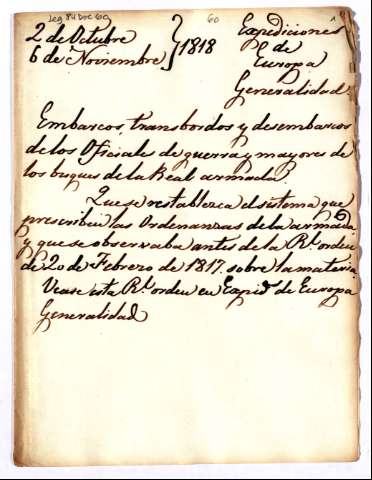 Leg 84 Doc 60
60
2 de Octubre
6 de Noviembre } 1818
Expediciones
de
Europa
Generalidad
Embarcos, transbordos y desembarcos
de los Oficiales de guerra y mayores de
los buques de la Real armada
Que se restablezca el sistema que
prescriben las Ordenanzas de la armada,
y que se observaba antes de la Rl. orden
de 20 de Febrero de 1817. sobre la materia.
Vease esta Rl. orden en Expids. de Europa
Generalidad